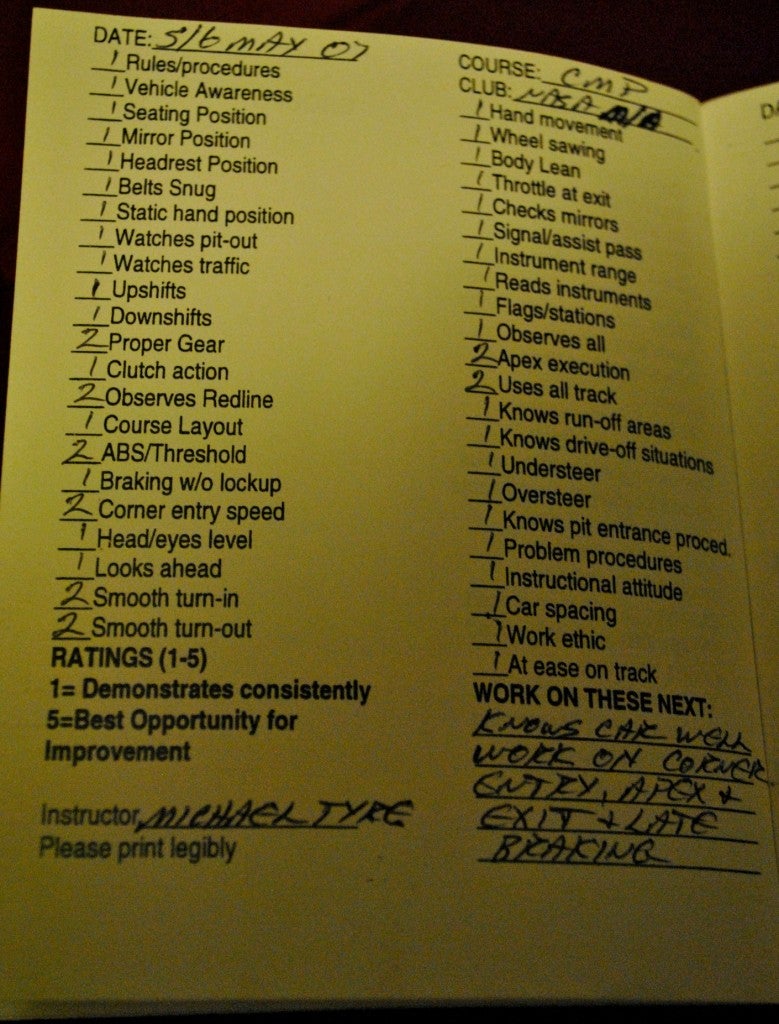 DATE: 5/6 MAY 07
1 Rules/procedures
1 Vehicle Awareness
1 Seating Position
1 Mirror Position
1 Headrest Position
1 Belts Snug
1 Static hand position
1 Watches pit-out
1 Watches traffic
1 Upshifts
1 Downshifts
2 Proper Gear
1 Clutch action
2 Observes Redline
1 Course Layout
2 ABS/Threshold
1 Braking w/o lockup
2 Corner entry speed
1 Head/eyes level
1 Looks ahead
2 Smooth turn-in
2 Smooth turn-out
RATINGS (1-5)
1= Demonstrates consistently
5=Best Opportunity for
Improvement
Instructor MICHAEL TYRE
Please print legibly
COURSE: CMP
CLUB: NASA
1 Hand movement
1 Wheel sawing
1 Body Lean
1 Throttle at exit
1 Checks mirrors
1 Signal/assist pass
1 Instrument range
1 Reads instruments
1 Flags/stations
1 Observes all
2 Apex execution
2 Uses all track
1 Knows run-off areas
1 Knows drive-off situations
1 Understeer
1 Oversteer
1 Knows pit entrance proced.
1 Problem procedures
1 Instructional attitude
1 Car spacing
1 Work ethic
1 At ease on track
WORK ON THESE NEXT:
KNOWS CAR WELL
WORK ON CORNER
ENTRY, APEX +
EXIT + LATE
BRAKING